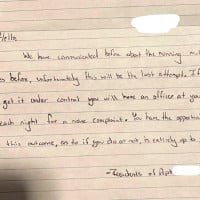 Hello
We have communicated before about the running
es before, unfortunately this will be the last attempt. If
get it under control you will have an officer at you
each night for a noise complaint. You have the opportun
this outcome, as to if you do or not, is entirely up to
- Residents of